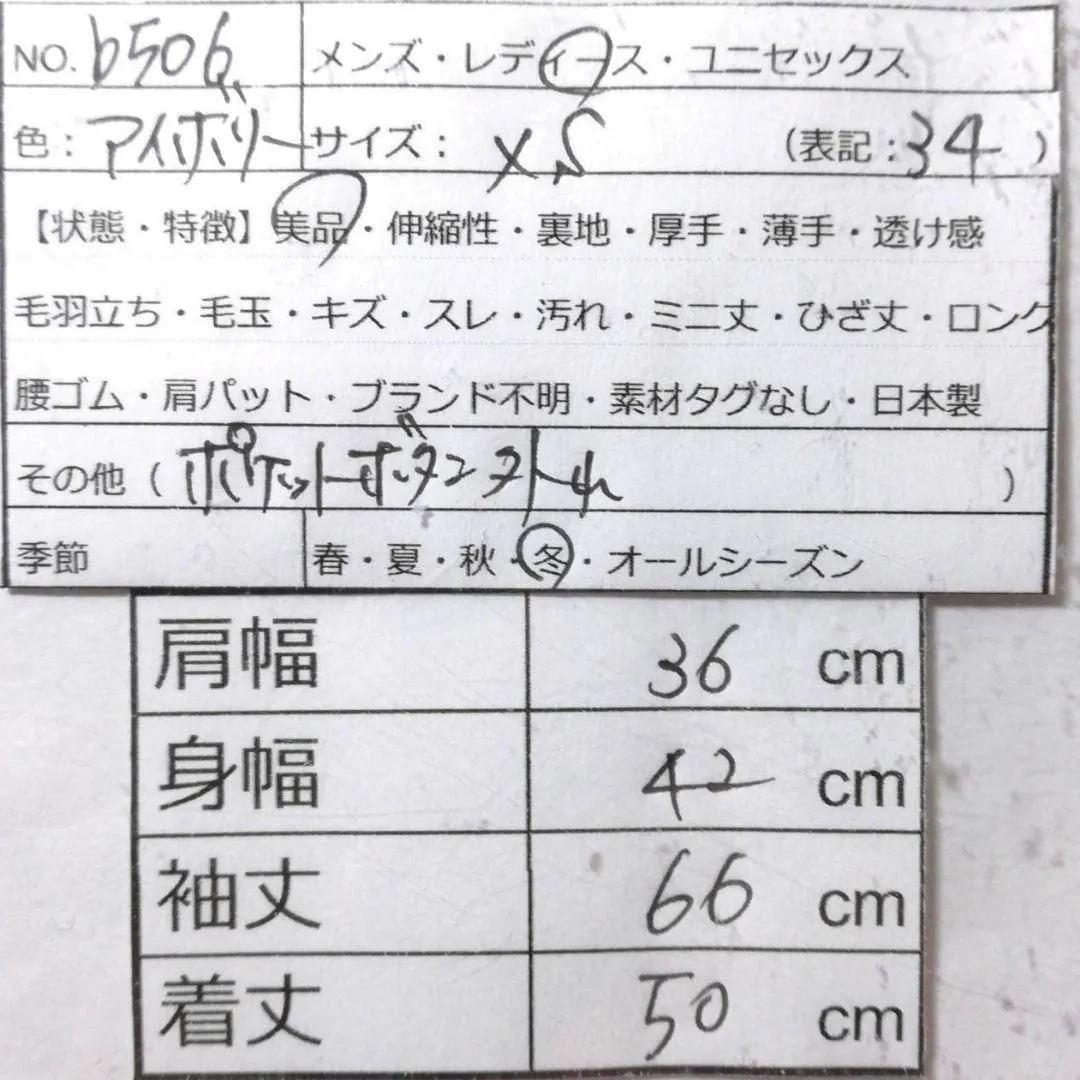 NO. b506 メンズ・レディース・ユニセックス
色：アイボリー サイズ： XS (表記：34)
【状態・特徴】美品・伸縮性・裏地・厚手・薄手・透け感
毛羽立ち・毛玉・キズ・スレ・汚れ・ミニ丈・ひざ丈・ロング
腰ゴム・肩パット・ブランド不明・素材タグなし・日本製
その他（ポケットボタンタトル）
季節 春・夏・秋・冬・オールシーズン
肩幅 36 cm
身幅 42 cm
袖丈 66 cm
着丈 50 cm